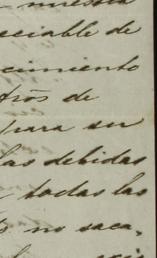 nuestra
eciable de
ocimiento
tros de
para su
las debidas
a todas las
no saca-